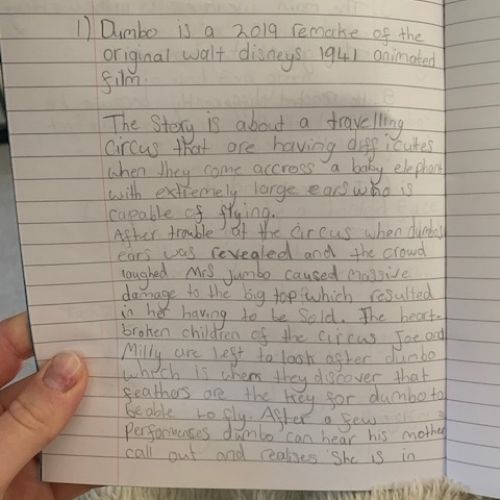 1) Dumbo is a 2019 remake of the
original walt disneys 1941 animated
film.
The Story is about a travelling
Circus that are having difficutes
when they come accross a baby elephant
with extremely large ears who is
capable of flying.
After trouble at the circus when dumbos
ears was revealed and the crowd
laughed Mrs Jumbo caused massive
damage to the big top which resulted
in her having to be Sold. The heart-
broken children of the circus Joe and
Milly are left to look after dumbo
which is when they discover that
feathers are the key for dumbo to
be able to fly. After a few
Performenses dumbo can hear his mother
call out and realises She is in